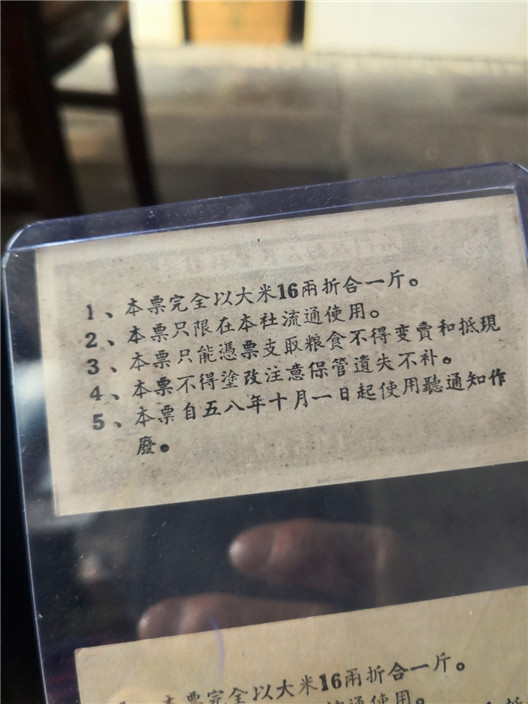 1、本票完全以大米16兩折合一斤。
2、本票只限在本社流通使用。
3、本票只能憑票支取粮食不得变賣和抵現
4、本票不得塗改注意保管遺失不补。
5、本票自五八年十月一日起使用聽通知作
廢。
本票完全以大米16兩折合一斤。
流通使用。